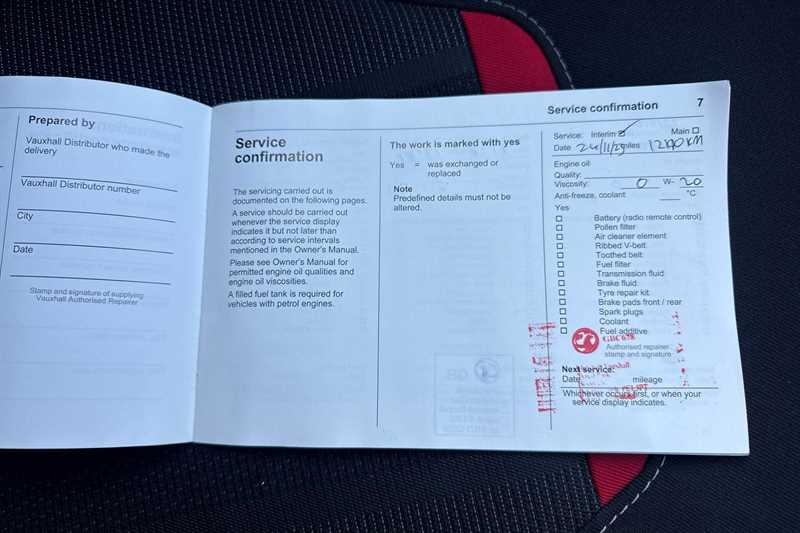 Prepared by
Vauxhall Distributor who made the
delivery
Vauxhall Distributor number
City
Date
Stamp and signature of supplying
Vauxhall Authorised Repairer
Service
confirmation
The servicing carried out is
documented on the following pages.
A service should be carried out
whenever the service display
indicates it but not later than
according to service intervals
mentioned in the Owner's Manual.
Please see Owner's Manual for
permitted engine oil qualities and
engine oil viscosities.
A filled fuel tank is required for
vehicles with petrol engines.
The work is marked with yes
Yes = was exchanged or
replaced
Note
Predefined details must not be
altered.
Service confirmation 7
Service: Interim Main
Date miles
Engine oil:
Quality:
Viscosity: 0 W- 20
Anti-freeze, coolant: °C
Yes
Battery (radio remote control)
Pollen filter
Air cleaner element
Ribbed V-belt
Toothed belt
Fuel filter
Transmission fluid
Brake fluid
Tyre repair kit
Brake pads front / rear
Spark plugs
Coolant
Fuel additive
Authorised repairer
stamp and signature
Next service:
Date mileage
Whichever occurs first, or when your
service display indicates.